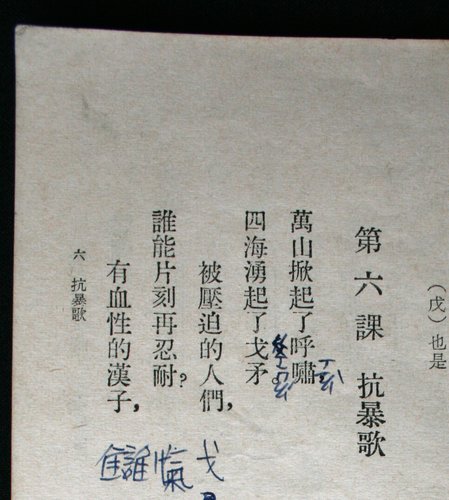 （戊）也是
第六課 抗暴歌
萬山掀起了呼嘯
四海湧起了戈矛。
被壓迫的人們，
誰能片刻再忍耐？
有血性的漢子，
六 抗暴歌
戈